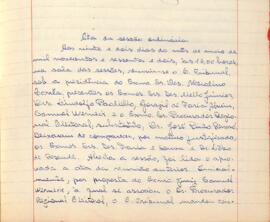 Ata da sessão ordinária
Aos vinte e dois dias do mês de maio de
mil novecentos e sessenta e dois, às 14,00 horas,
na sala das sessões, reuniu-se o E. Tribunal,
sob a presidência do Exmo. Sr. Des.
presentes os Exmos. Srs. Drs. Mello Júnior,
de Faria
e o Exmo. Sr. Procurador Regio-
nal Eleitoral, substituto, Dr. José
Deixaram de comparecer, por motivo justificado,
os Exmos. Srs. Drs.
Aberta a sessão, foi lida e apro-
vada a ata da reunião anterior. Inicial-
mente, por proposta do Exmo. Juiz Samuel
à qual se associou o Sr. Procurador
Regional Eleitoral, o E. Tribunal mandou con-